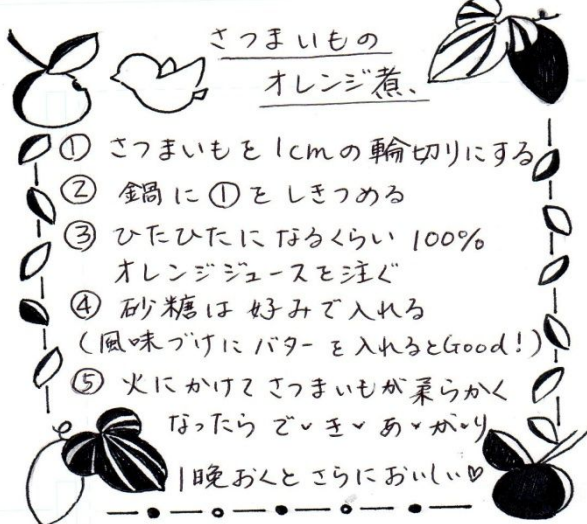 さつまいもの
オレンジ煮、
① さつまいもを1cmの輪切りにする
② 鍋に①をしきつめる
③ ひたひたになるくらい 100%
オレンジジュースを注ぐ
④ 砂糖は好みで入れる
(風味づけにバターを入れるとGood!)
⑤ 火にかけてさつまいもが柔らかく
なったら で・き・あ・が・り
1晩おくとさらにおいしい♡